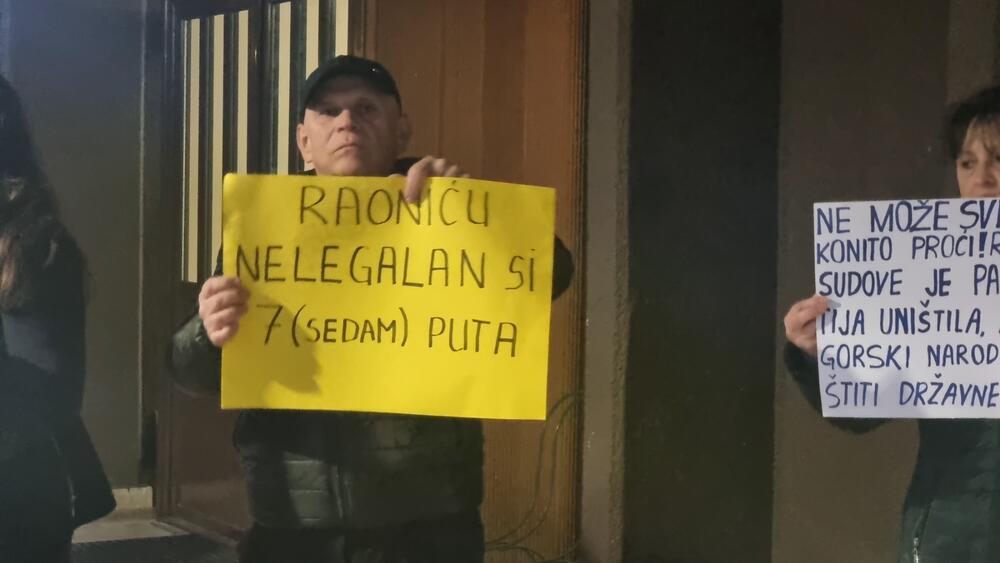 RAONIĆU
NELEGALAN SI
7 (SEDAM) PUTA
NE MOŽE
KONITO PROĆI!
SUDOVE JE
TIJA UNIŠTILA,
GORSKI NAROD
ŠTITI DRŽAVNE